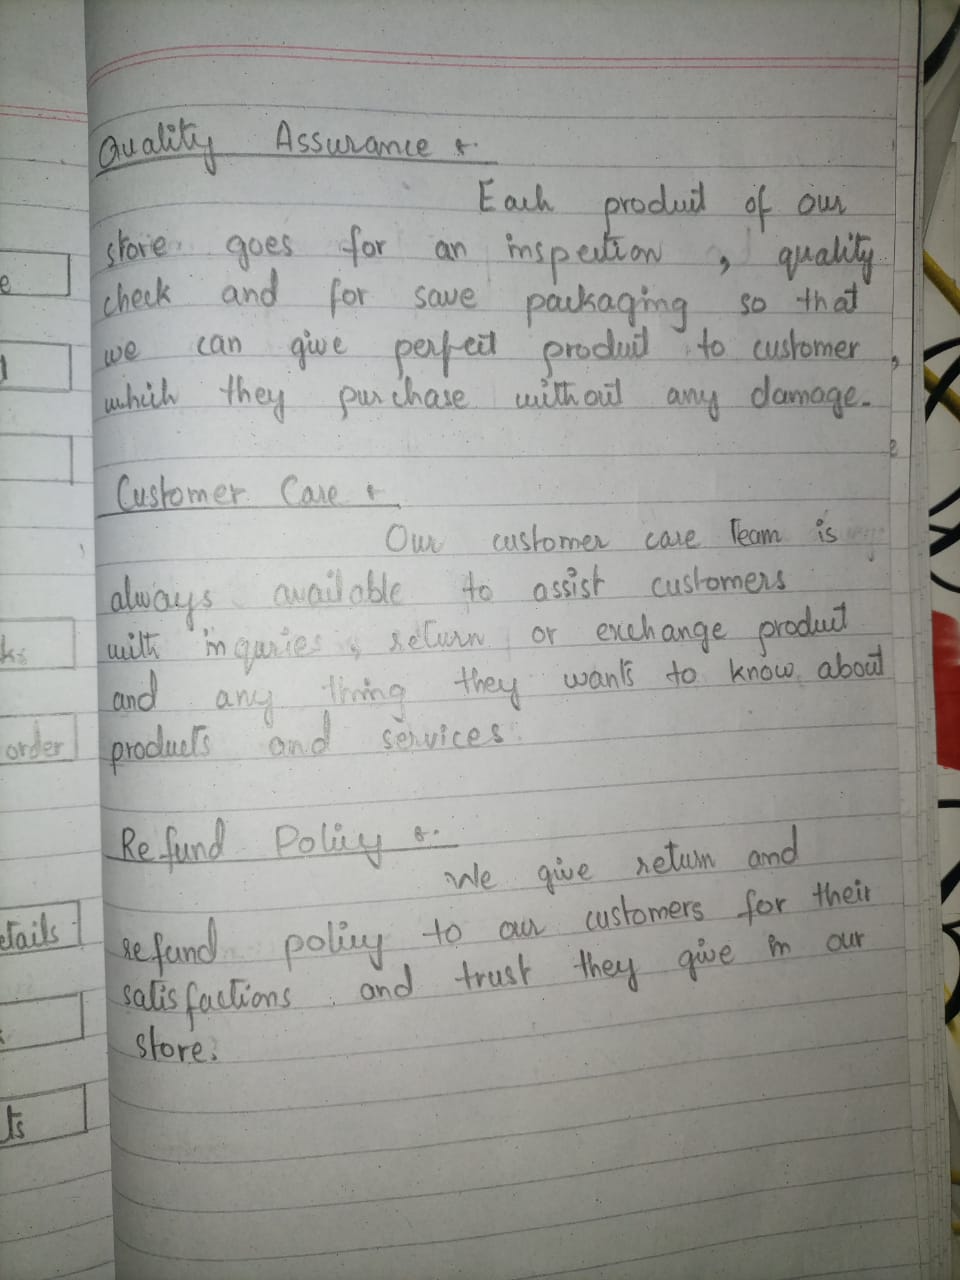 Quality Assurance :-
Each product of our
store goes for an inspection , quality
check and for save packaging so that
we can give perfect product to customer ,
which they purchase without any damage.
Customer Care :-
Our customer care Team is
always available to assist customers
with inquries , return or exchange product
and any thing they wants to know about
products and services.
Refund Policy :-
We give return and
refund policy to our customers for their
satisfactions and trust they give in our
store.
order
etails
ts